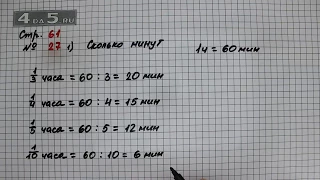 4DA5.RU
Стр. 61
№ 27 1) Сколько минут 1ч = 60 мин
1/3 часа = 60 : 3 = 20 мин
1/4 часа = 60 : 4 = 15 мин
1/5 часа = 60 : 5 = 12 мин
1/10 часа = 60 : 10 = 6 мин